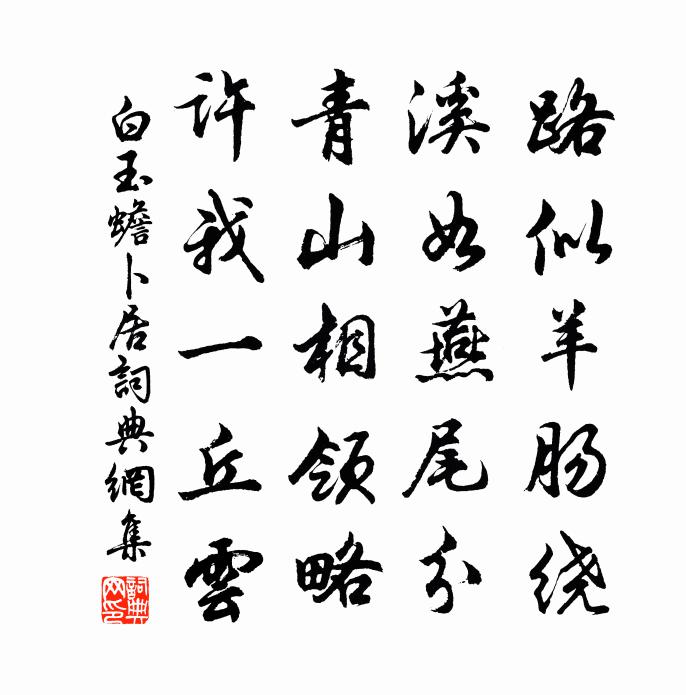 路似羊肠绕
溪如燕尾分
青山相领略
许我一丘雲
白玉蟾卜居詞典網集
詞典網印